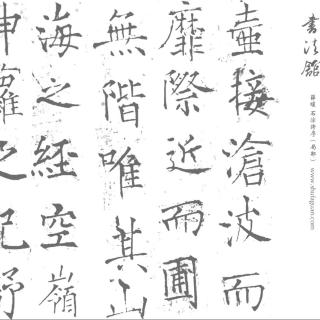 書法館
薛曜 石淙詩序（局部） www.shufaguan.com
壺接滄波而
靡際近而圃
無階唯其山
海之經空嶺
之記野